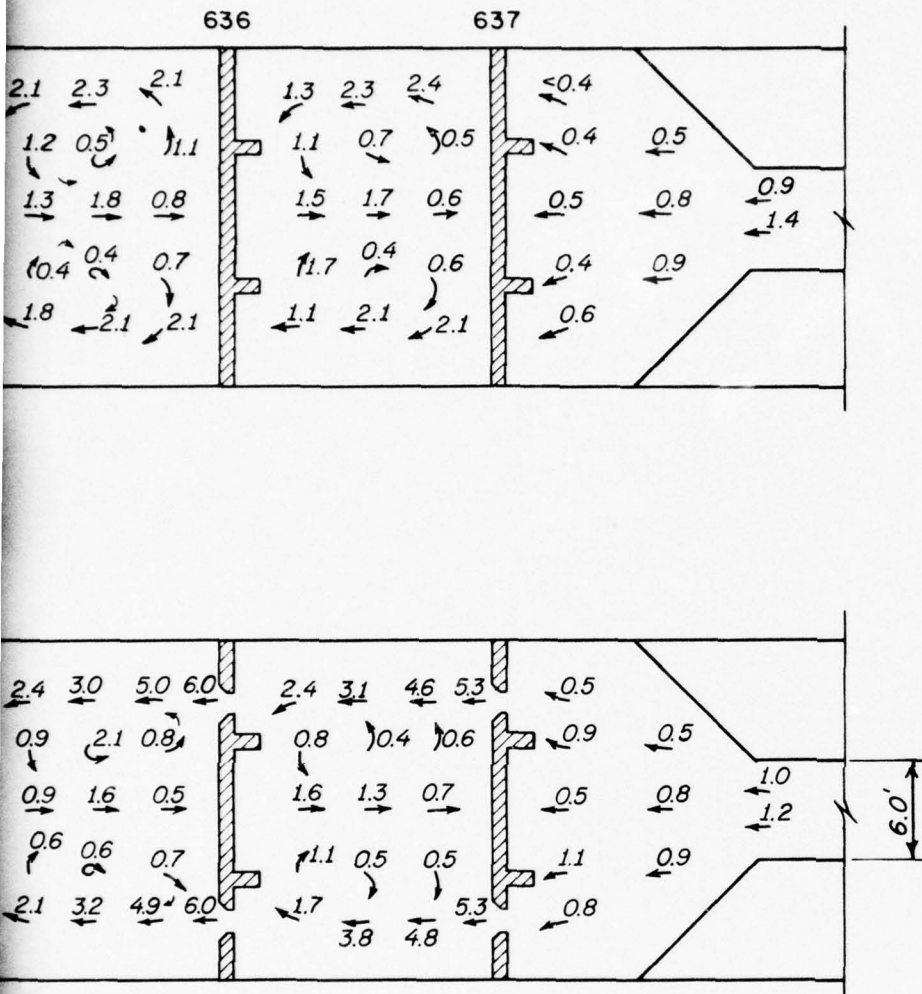 636 637
2.1 2.3 2.1 1.3 2.3 2.4 <0.4
1.2 0.5 1.1 1.1 0.7 0.5 0.4 0.5
1.3 1.8 0.8 1.5 1.7 0.6 0.5 0.8 0.9
1.4
0.4 0.4 0.7 1.7 0.4 0.6 0.4 0.9
1.8 2.1 2.1 1.1 2.1 2.1 0.6
2.4 3.0 5.0 6.0 2.4 3.1 4.6 5.3 0.5
0.9 2.1 0.8 0.8 0.4 0.6 0.9 0.5
0.9 1.6 0.5 1.6 1.3 0.7 0.5 0.8 1.0
1.2
6.0'
0.6 0.6 0.7 1.1 0.5 0.5 1.1 0.9
2.1 3.2 4.9 6.0 1.7 5.3 0.8
3.8 4.8